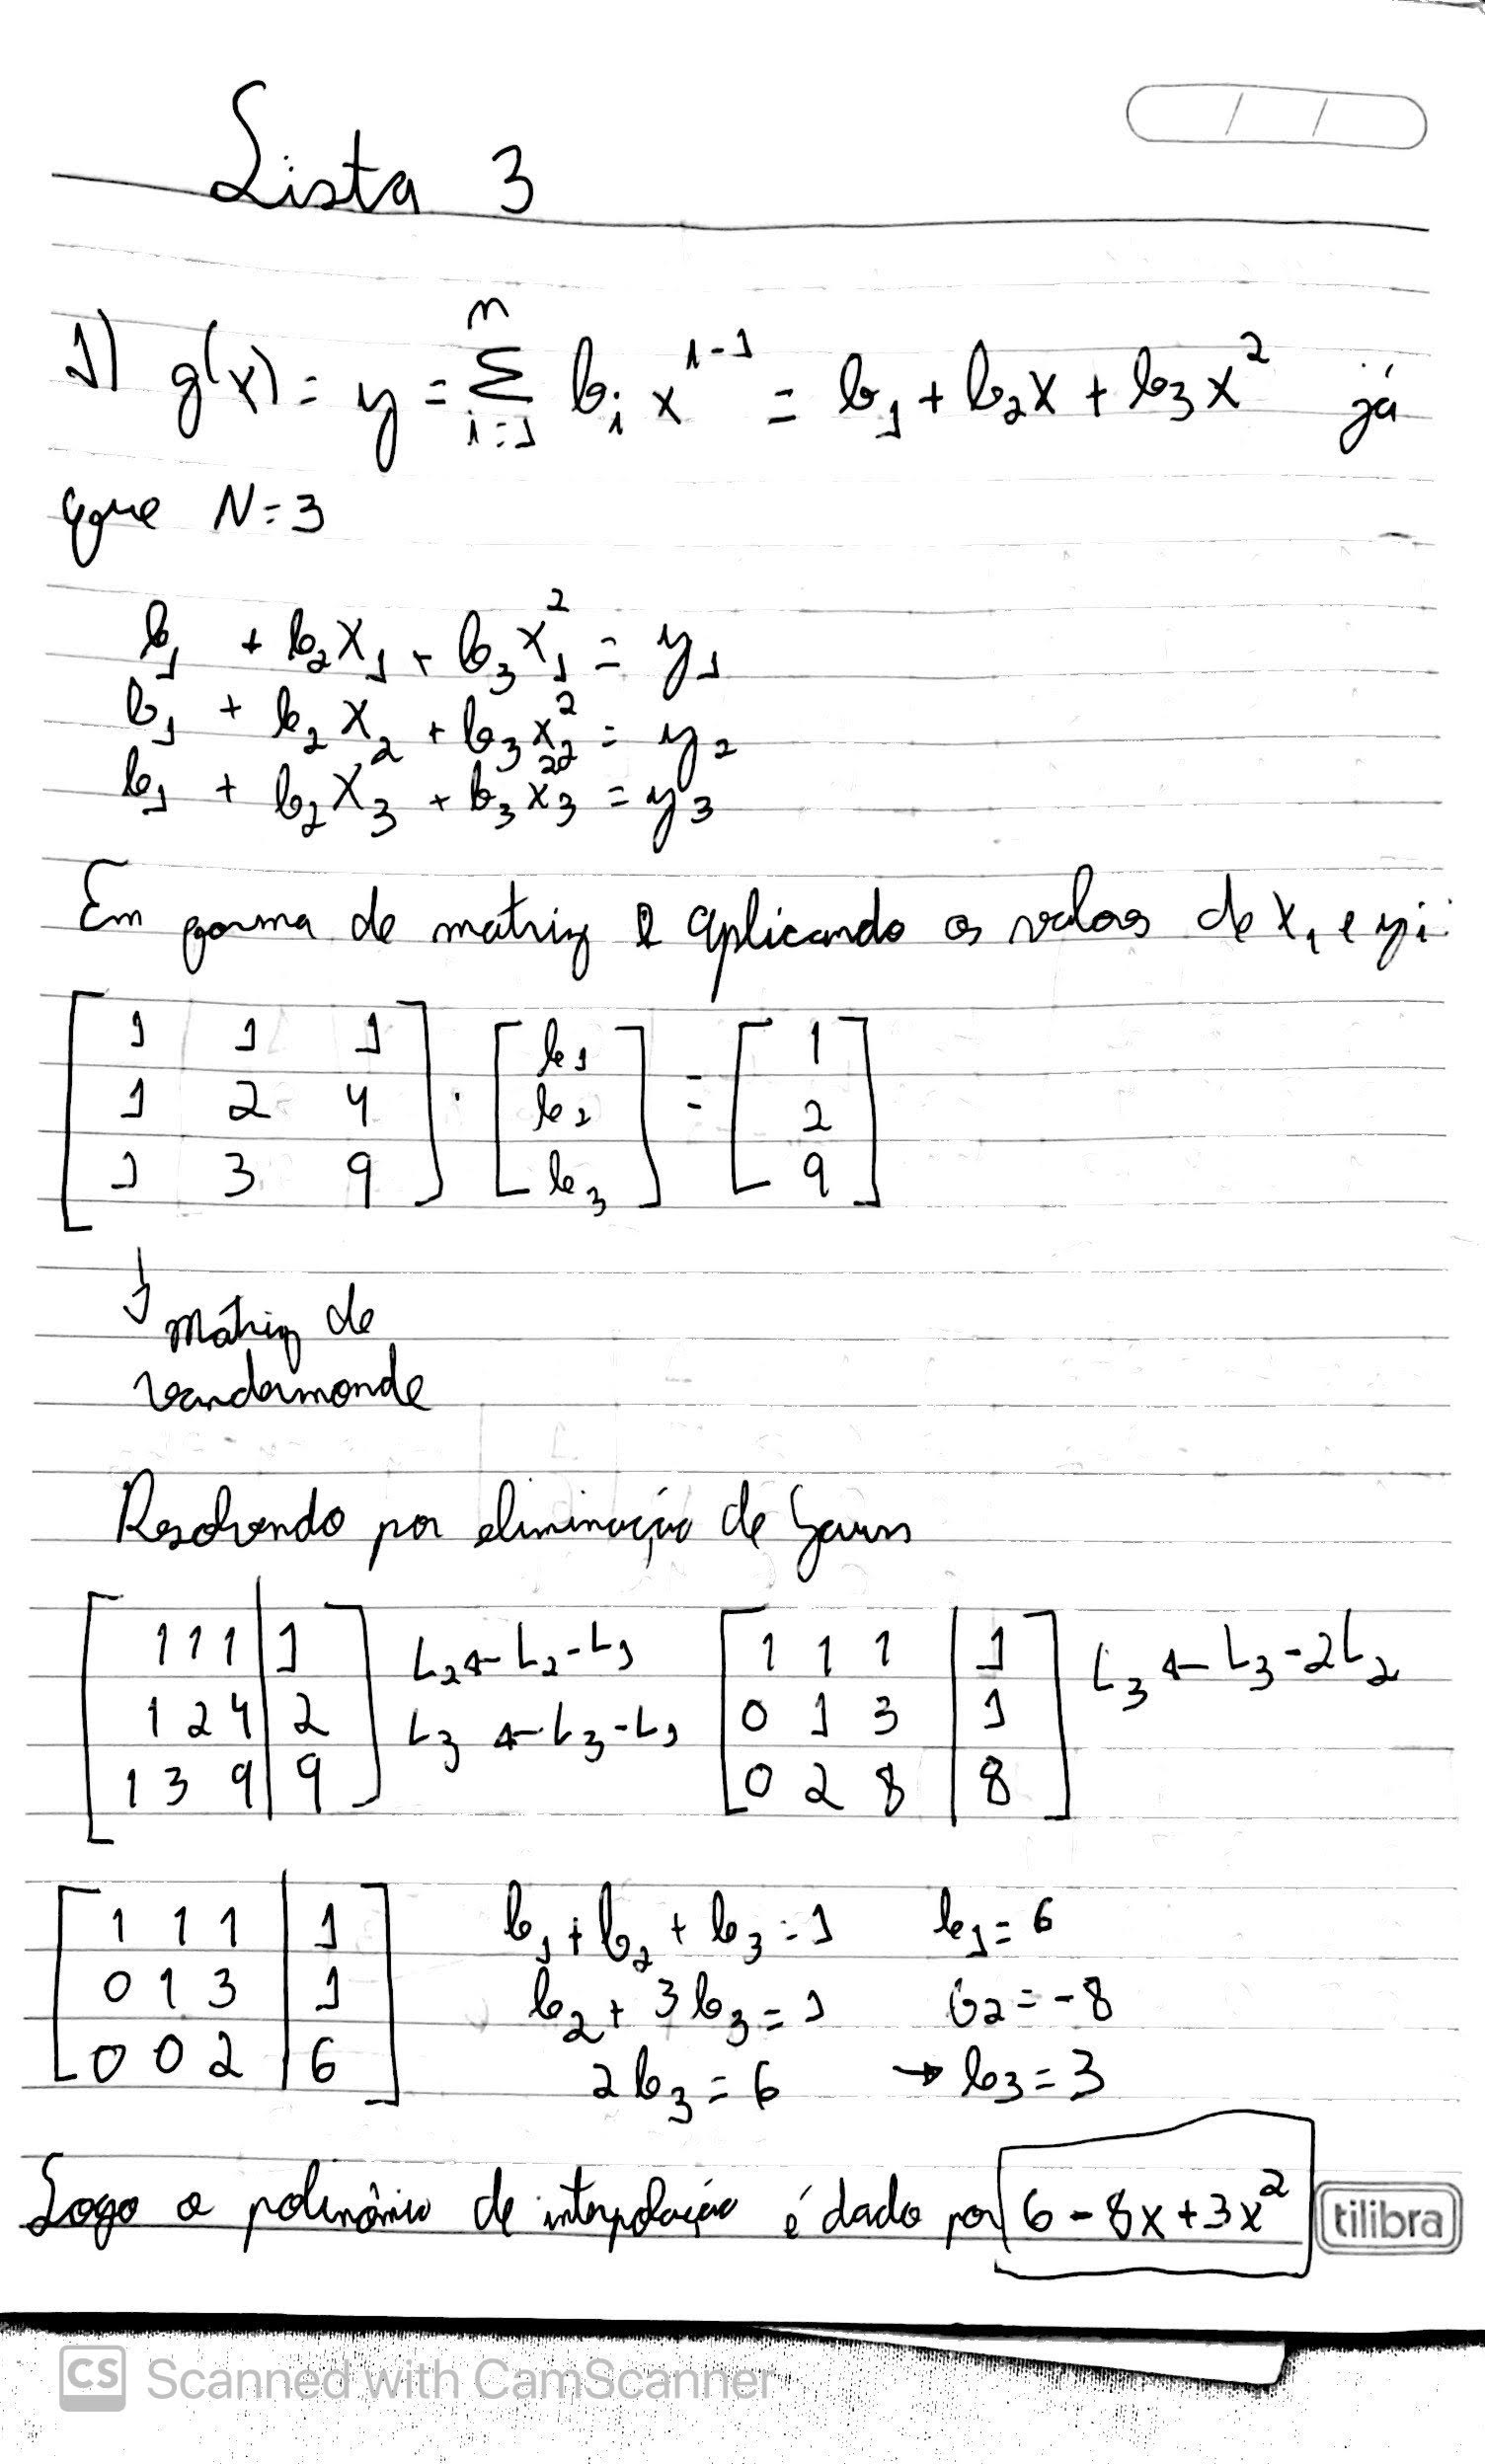 Lista 3
1) g(x) = y = n Σ i=1 b_i x^{i-1} = b_1 + b_2 x + b_3 x^2 já
que N=3
b_1 + b_2 x_1 + b_3 x_1^2 = y_1
b_1 + b_2 x_2 + b_3 x_2^2 = y_2
b_1 + b_2 x_3 + b_3 x_3^2 = y_3
Em forma de matriz e aplicando os valores de x_i e y_i:
[ 1 1 1 ] [ b_1 ] [ 1 ]
[ 1 2 4 ] · [ b_2 ] = [ 2 ]
[ 1 3 9 ] [ b_3 ] [ 9 ]
↓ Matriz de
Vandermonde
Resolvendo por eliminação de Gauss
[ 1 1 1 | 1 ] L_2 ← L_2 - L_1 [ 1 1 1 | 1 ] L_3 ← L_3 - 2L_2
[ 1 2 4 | 2 ] L_3 ← L_3 - L_1 [ 0 1 3 | 1 ]
[ 1 3 9 | 9 ] [ 0 2 8 | 8 ]
[ 1 1 1 | 1 ] b_1 + b_2 + b_3 = 1 b_1 = 6
[ 0 1 3 | 1 ] b_2 + 3b_3 = 1 b_2 = -8
[ 0 0 2 | 6 ] 2b_3 = 6 → b_3 = 3
Logo o polinômio de interpolação é dado por 6 - 8x + 3x^2
tilibra
CS Scanned with CamScanner